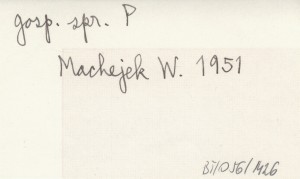 gosp. spr. P
Machejek W. 1951
BJ/056/1426